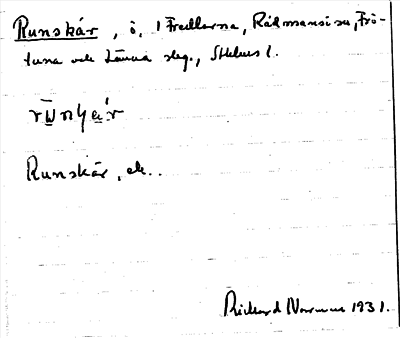 Runskär, ö, i Fredlarna, Rådmansö sn, Frö-
tuna och Länna slg., Sthlms l.
Runskär, ek..
Rickard Norrman 1931.